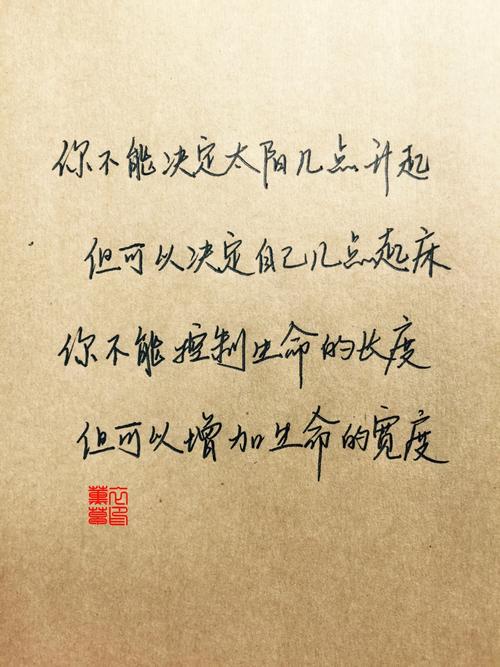 你不能决定太阳几点升起
但可以决定自己几点起床
你不能控制生命的长度
但可以增加生命的宽度